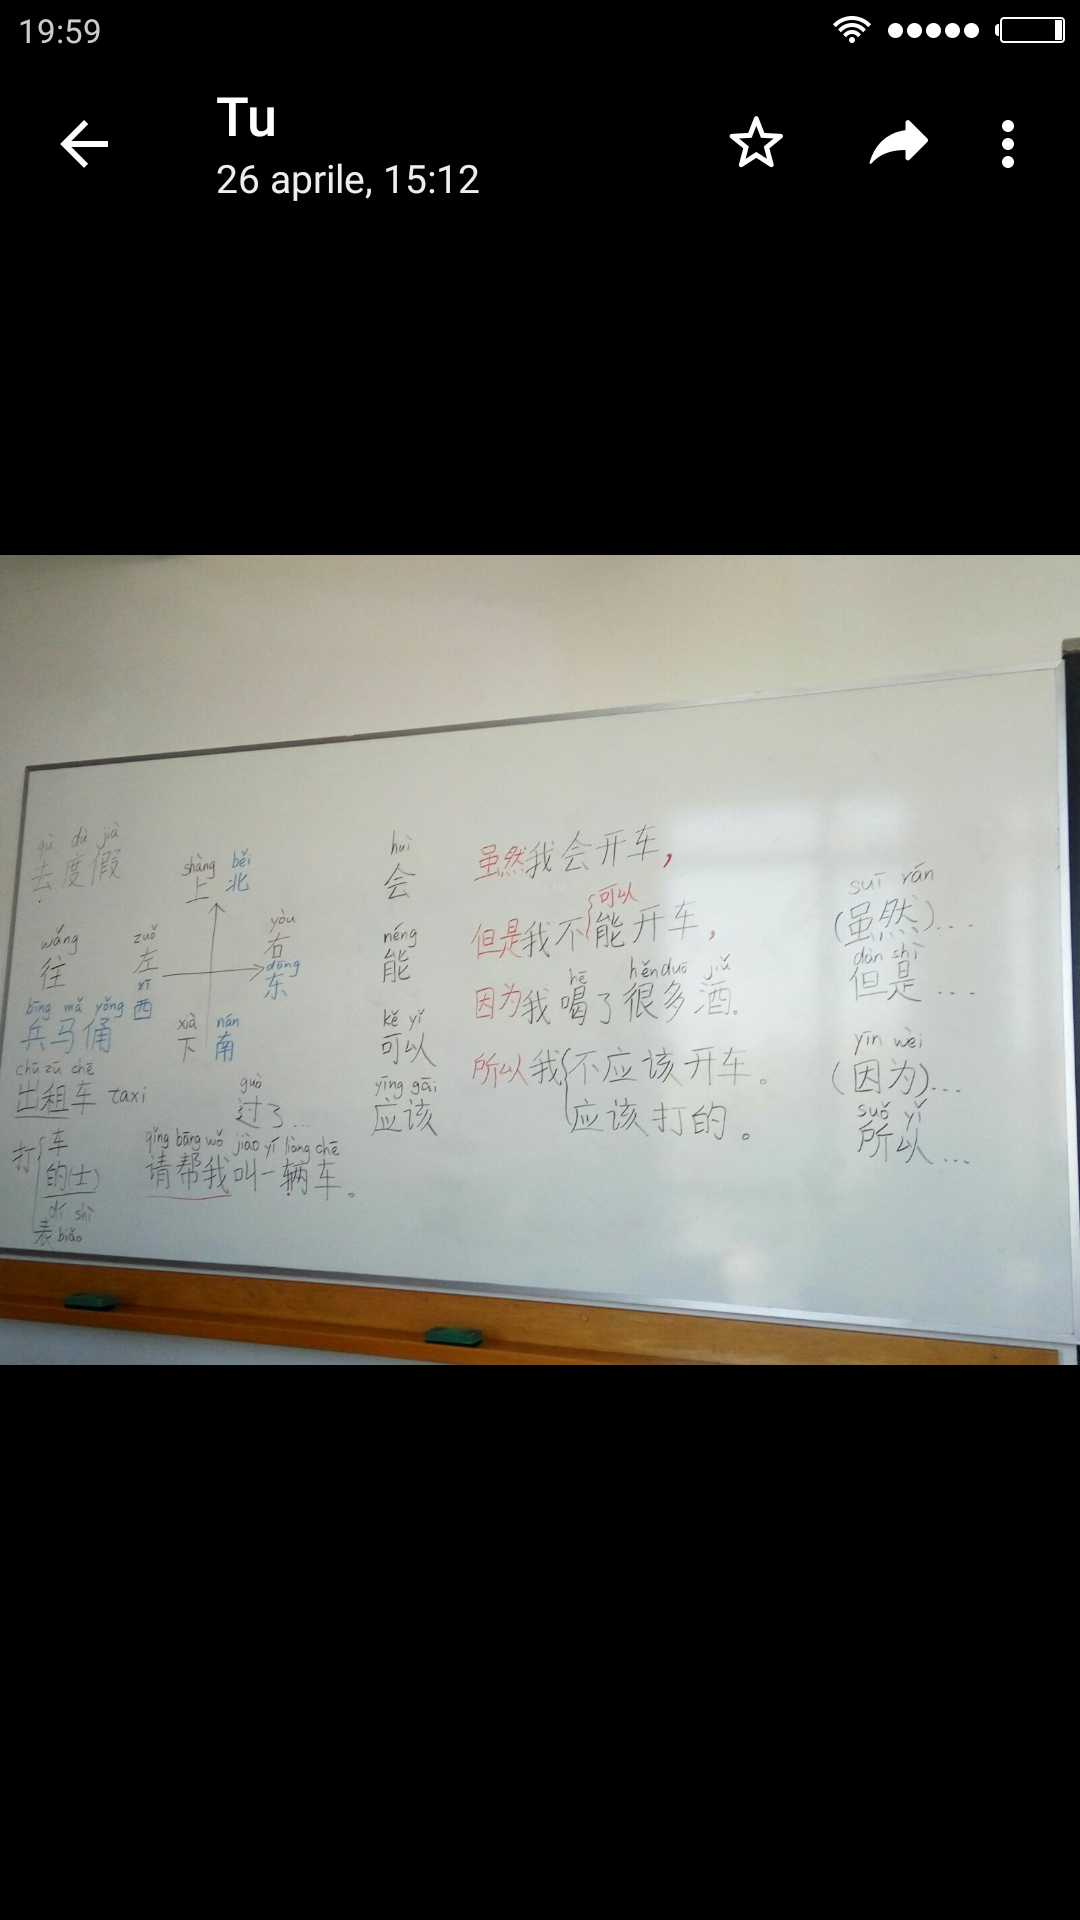 19:59
Tu
26 aprile, 15:12
qù dù jià
去度假
wǎng
往
bīng mǎ yǒng
兵马俑
chū zū chē
出租车 taxi
打 { 车
的(士)
dī shì
表 biǎo
shàng běi
上 北
zuǒ
左
xī
西
yòu
右
dōng
东
xià nán
下 南
guò
过了...
qǐng bāng wǒ jiào yī liàng chē
请帮我叫一辆车。
huì
会
néng
能
kě yǐ
可以
yīng gāi
应该
虽然我会开车,
可以
但是我不{能开车,
hē hěn duō jiǔ
因为我喝了很多酒.
所以我{不应该开车。
应该打的。
suī rán
(虽然)...
dàn shì
但是...
yīn wèi
(因为)...
suǒ yǐ
所以...